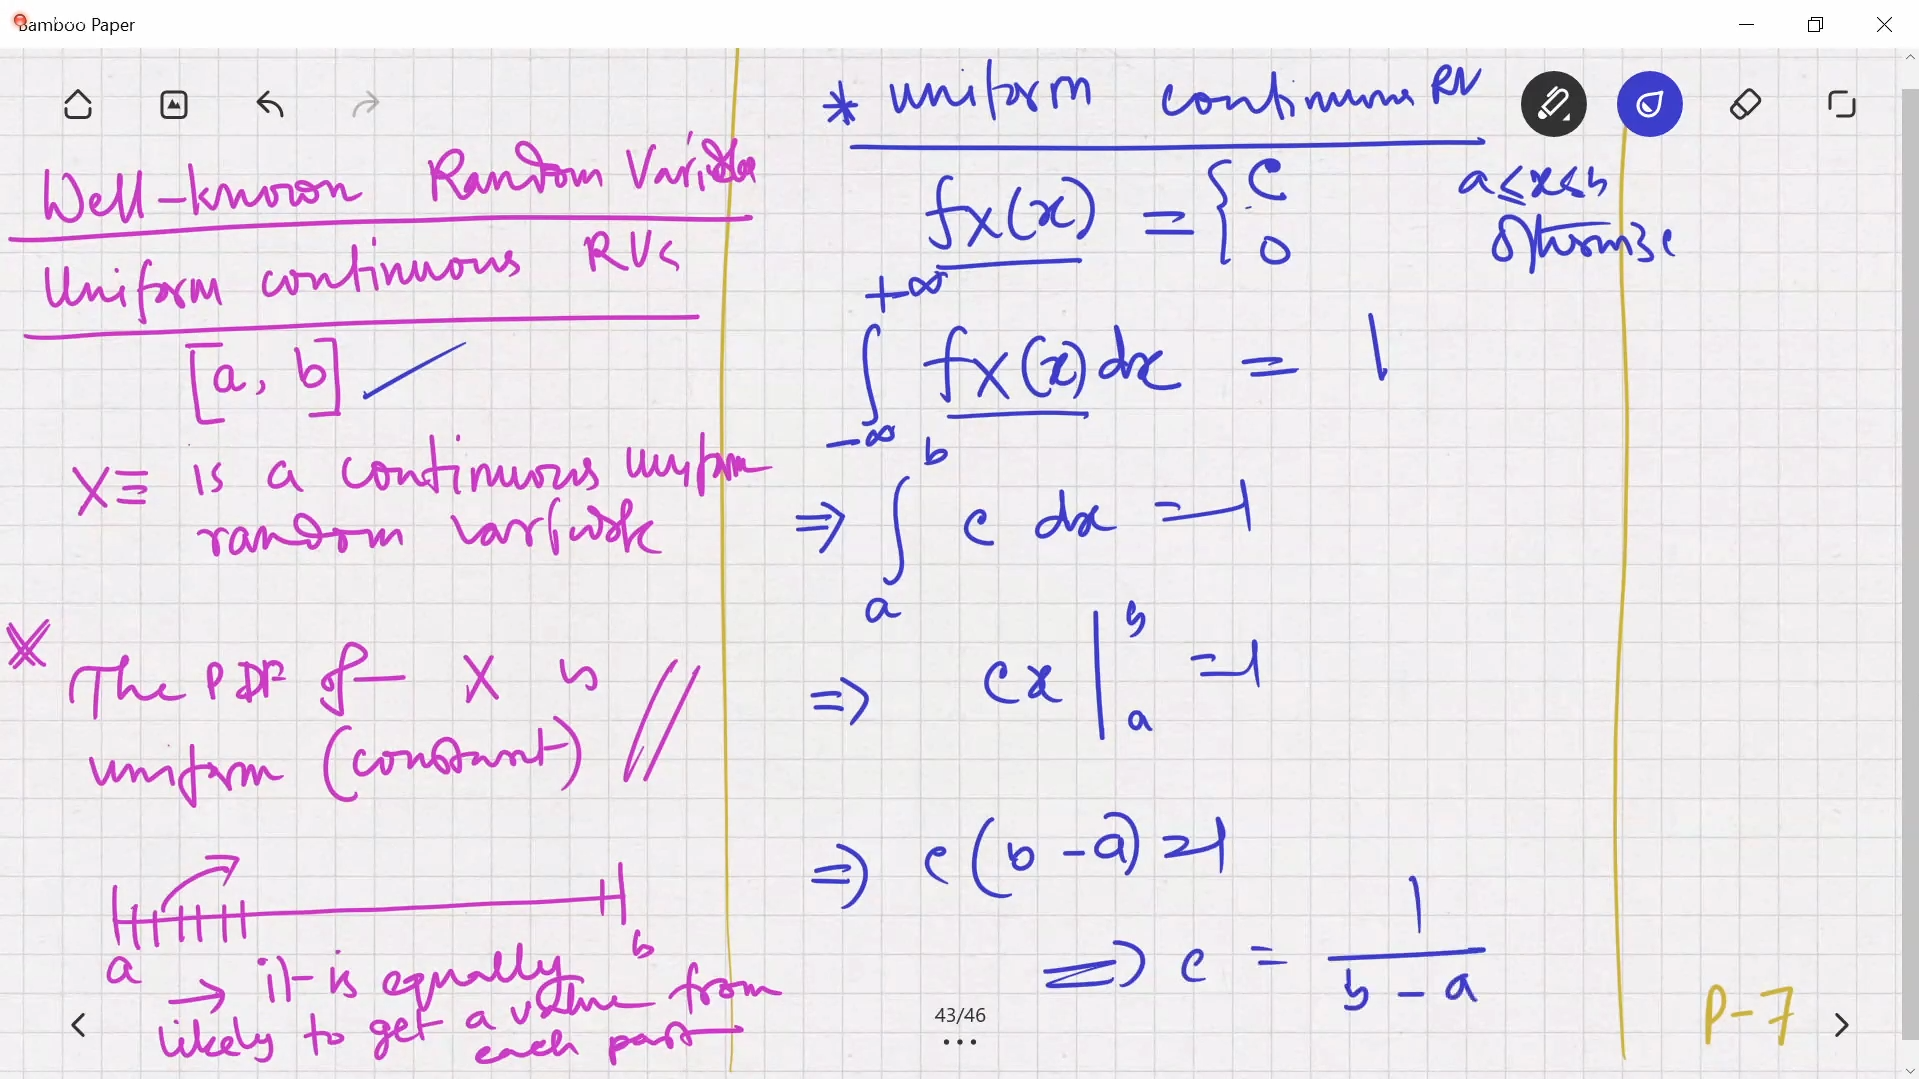 Bamboo Paper
Well-known Random Variable
Uniform continuous RVs
[a, b]
X≡ is a continuous uniform
random variable
The PDF of X is
uniform (constant)
a b
→ it is equally
likely to get a value from
each part
* uniform continuous RV
fx(x) = { C a≤x≤b
0 Otherwise
+∞
∫ fx(x) dx = 1
-∞
b
⇒ ∫ c dx = 1
a
b
⇒ cx | = 1
a
⇒ c(b - a) = 1
⇒ c = 1
b - a
43/46
P-7